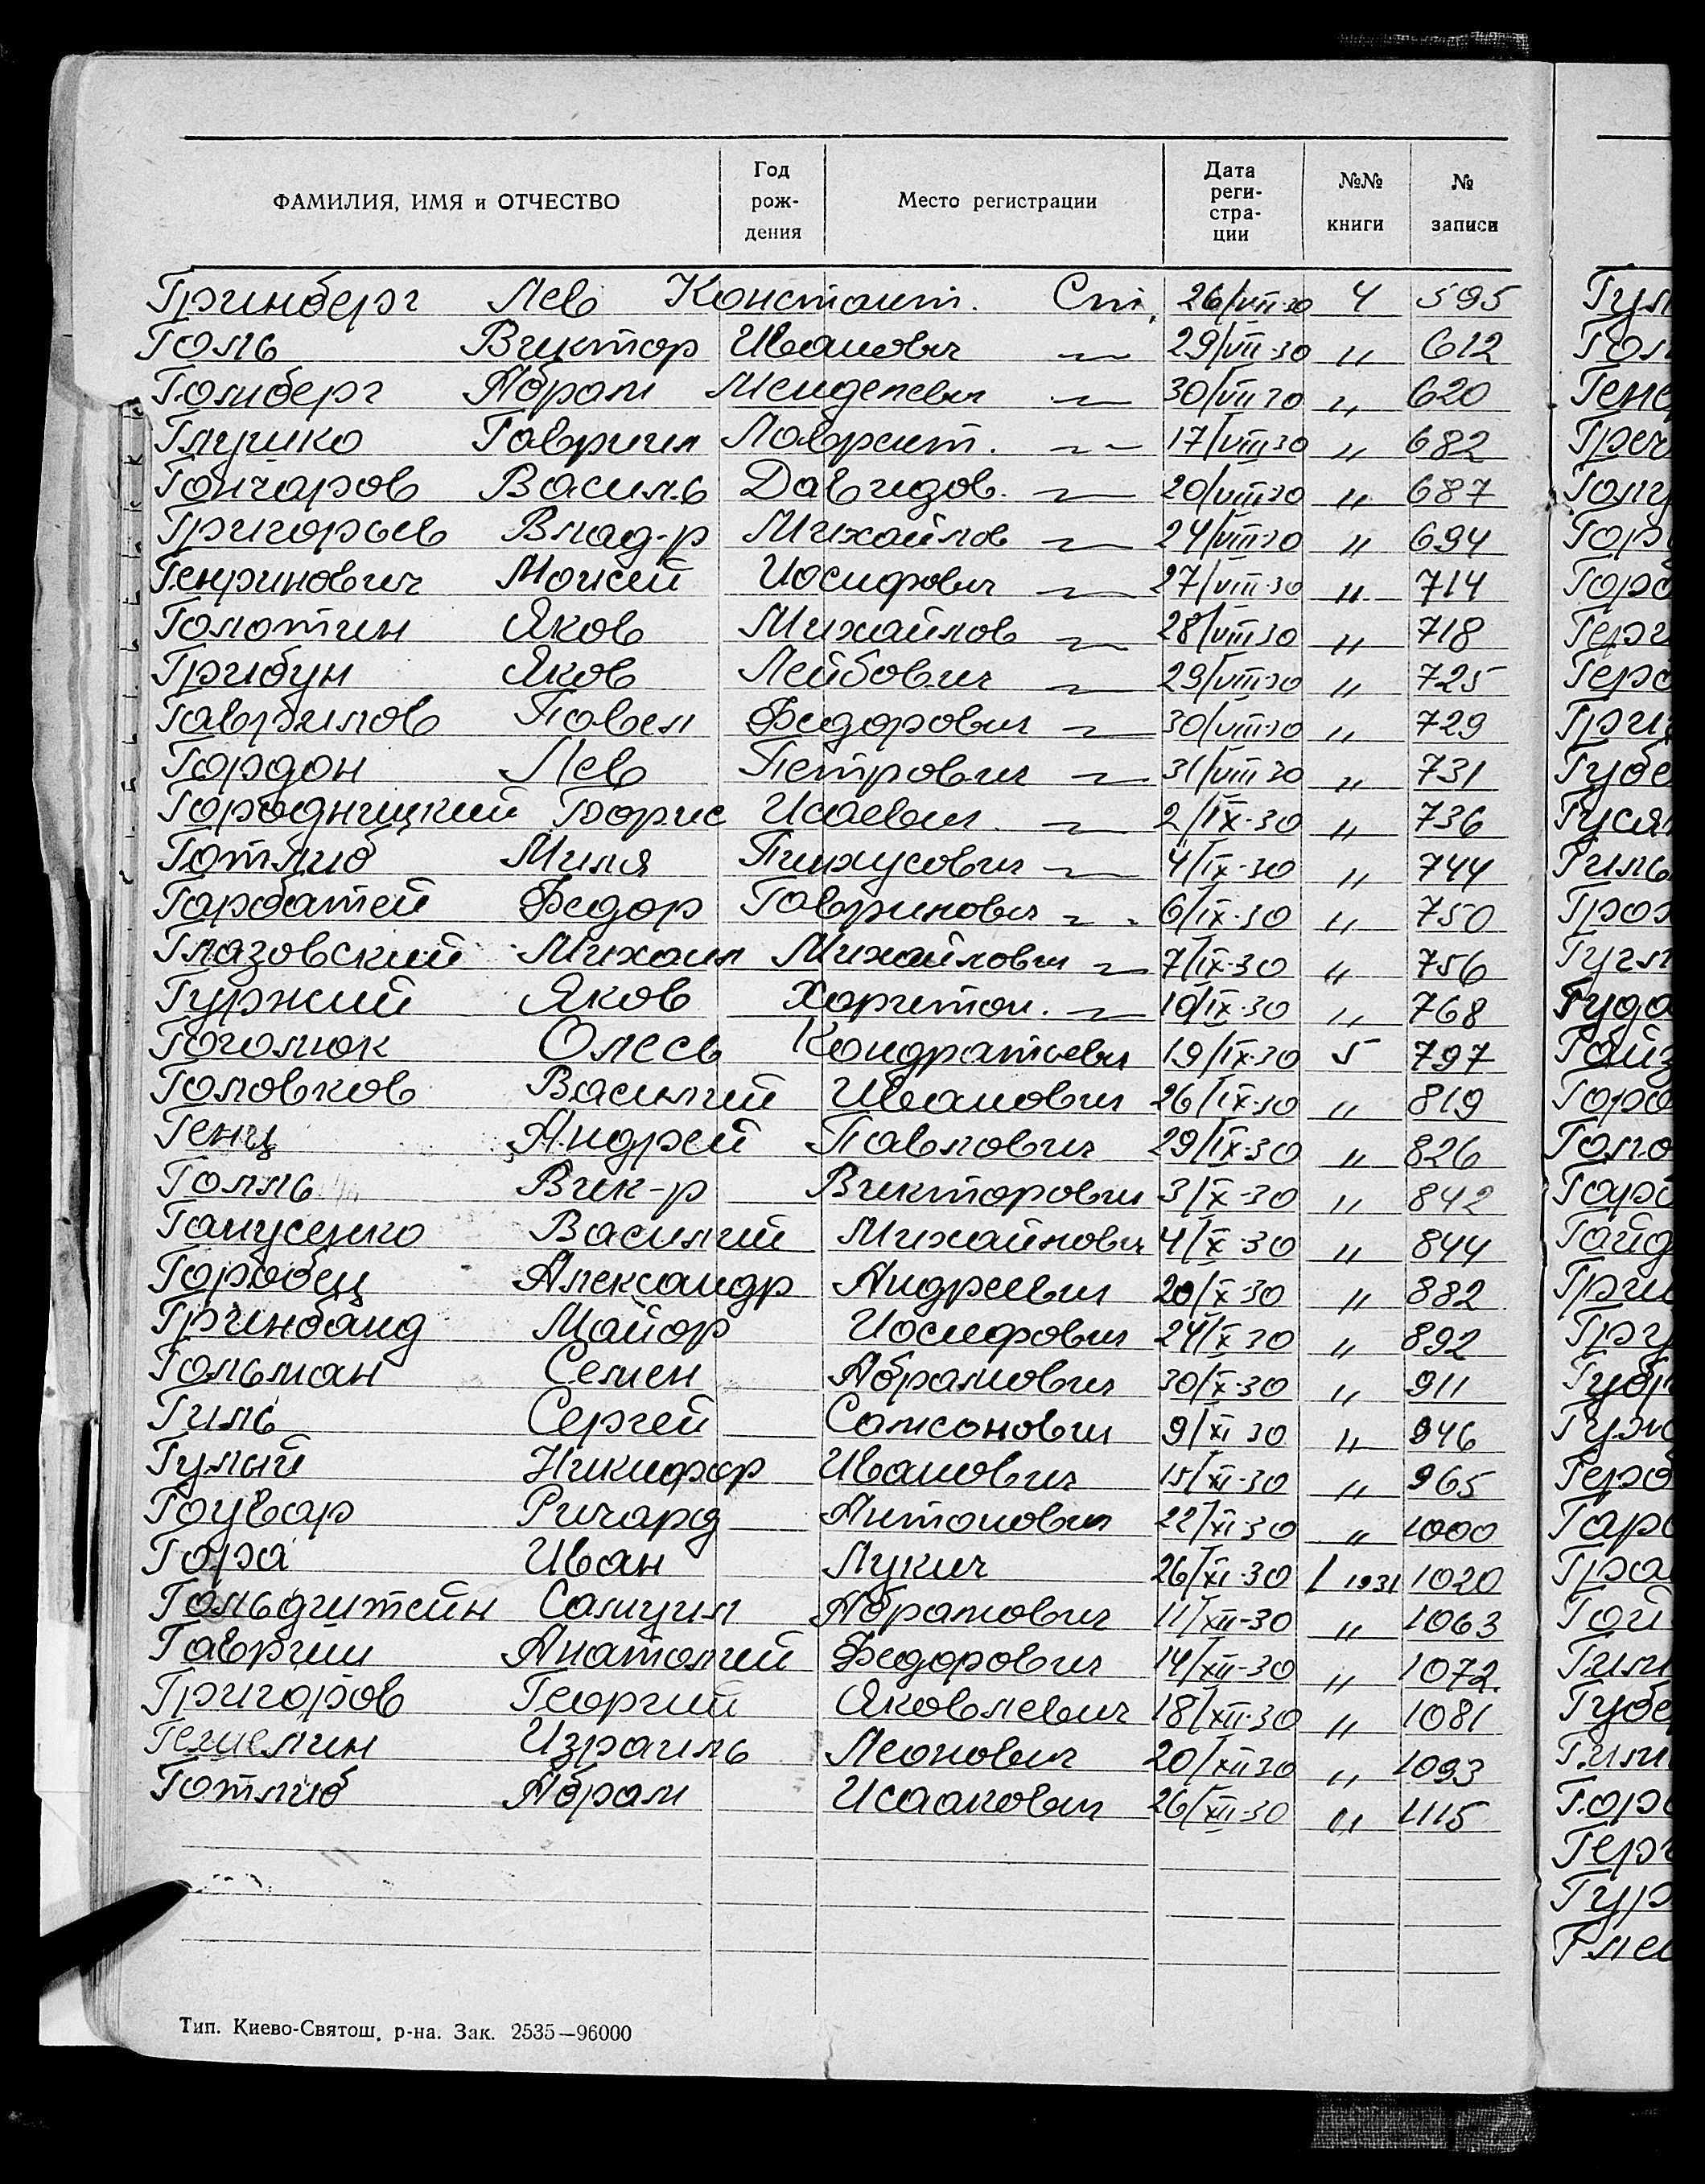 ФАМИЛИЯ, ИМЯ и ОТЧЕСТВО Год рож- дения Место регистрации Дата реги- стра- ции №№ книги № записи
Гринберг Лев Констант. Ст. 26/VII-30 4 595
Голь Виктор Иванович 29/VII-30 〃 612
Голиберг Абрам Менделевич 30/VII 30 〃 620
Глушко Гавриил Лаврент. 17/VIII 30 〃 682
Гончаров Василь Давидов. 20/VIII 30 〃 687
Григорьев Влад-р Михайлов 24/VIII 30 〃 694
Генринович Моисей Иосифович 27/VIII-30 〃 714
Голотин Яков Михайлов 28/VIII 30 〃 718
Грибун Яков Лейбович 29/VIII 30 〃 725
Гаврилов Павел Федорович 30/VIII-30 〃 729
Гордон Лев Петрович 31/VIII 30 〃 731
Городницкий Борис Исаевич 2/IX-30 〃 736
Готлиб Миля Пинхусович 4/IX-30 〃 744
Гарбатей Федор Гавринович 6/IX-30 〃 750
Глазовский Михаил Михайлович 7/IX-30 〃 756
Гуржий Яков Харитон. 10/IX-30 〃 768
Гоголюк Олесь Кондратьевич 19/IX-30 5 797
Головков Василий Иванович 26/IX-30 〃 819
Генц Андрей Павлович 29/IX-30 〃 826
Голль Вик-р Викторович 3/X-30 〃 842
Ганусенко Василий Михайлович 4/X-30 〃 844
Горобец Александр Андреевич 20/X-30 〃 882
Гринбанд Майор Иосифович 24/X-30 〃 892
Гольман Семен Абрамович 30/X-30 〃 911
Гиль Сергей Самсонович 9/XI 30 〃 946
Гулый Никифор Иванович 15/XI-30 〃 965
Гоувар Ричард Антонович 22/XI-30 〃 1000
Гора Иван Лукич 26/XI-30 1 1931 1020
Гольдштейн Самуил Абрамович 11/XII-30 〃 1063
Гавриш Анатолий Федорович 14/XII-30 〃 1072.
Григоров Георгий Яковлевич 18/XII-30 〃 1081
Гешелин Израиль Леонович 20/XII 30 〃 1093
Готлиб Абрам Исаакович 26/XII-30 〃 1115
Тип. Киево-Святош. р-на. Зак. 2535—96000